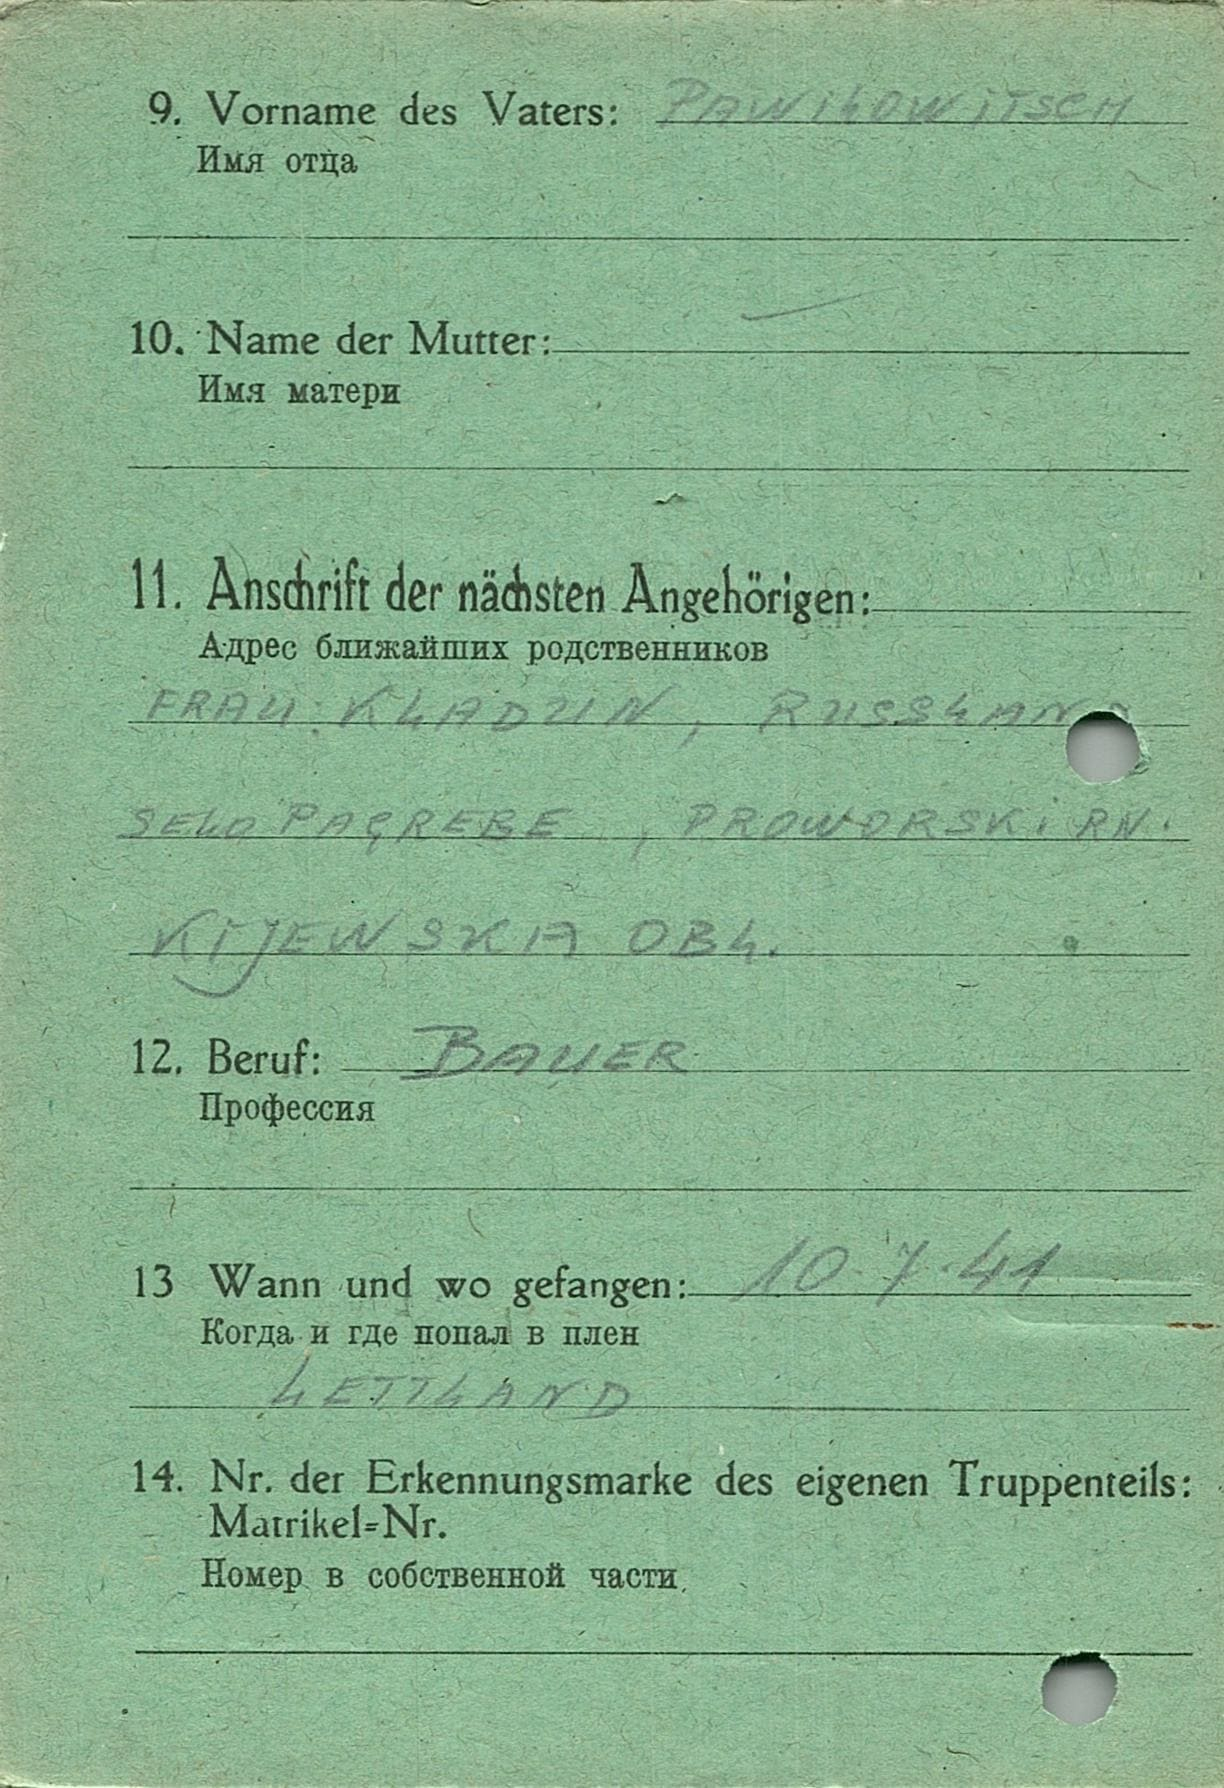 9. Vorname des Vaters: PAWILOWITSCH
Имя отца
10. Name der Mutter:
Имя матери
11. Anschrift der nächsten Angehörigen:
Адрес ближайших родственников
FRAU: KLADUN, RUSSLAND
SELO PAGREBE, PROWORSKI RN.
KIJEWSKA OBL.
12. Beruf: BAUER
Профессия
13 Wann und wo gefangen: 10.7.41
Когда и где попал в плен
LETTLAND
14. Nr. der Erkennungsmarke des eigenen Truppenteils:
Matrikel=Nr.
Номер в собственной части